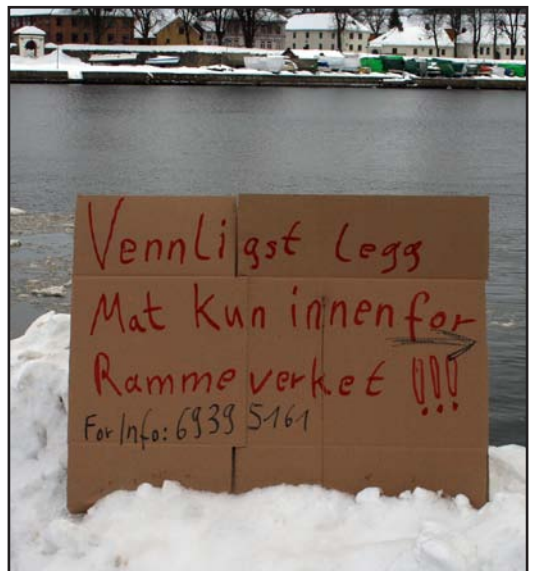 Vennligst legg
Mat kun innenfor
Rammeverket !!!
For Info: 6939 5161